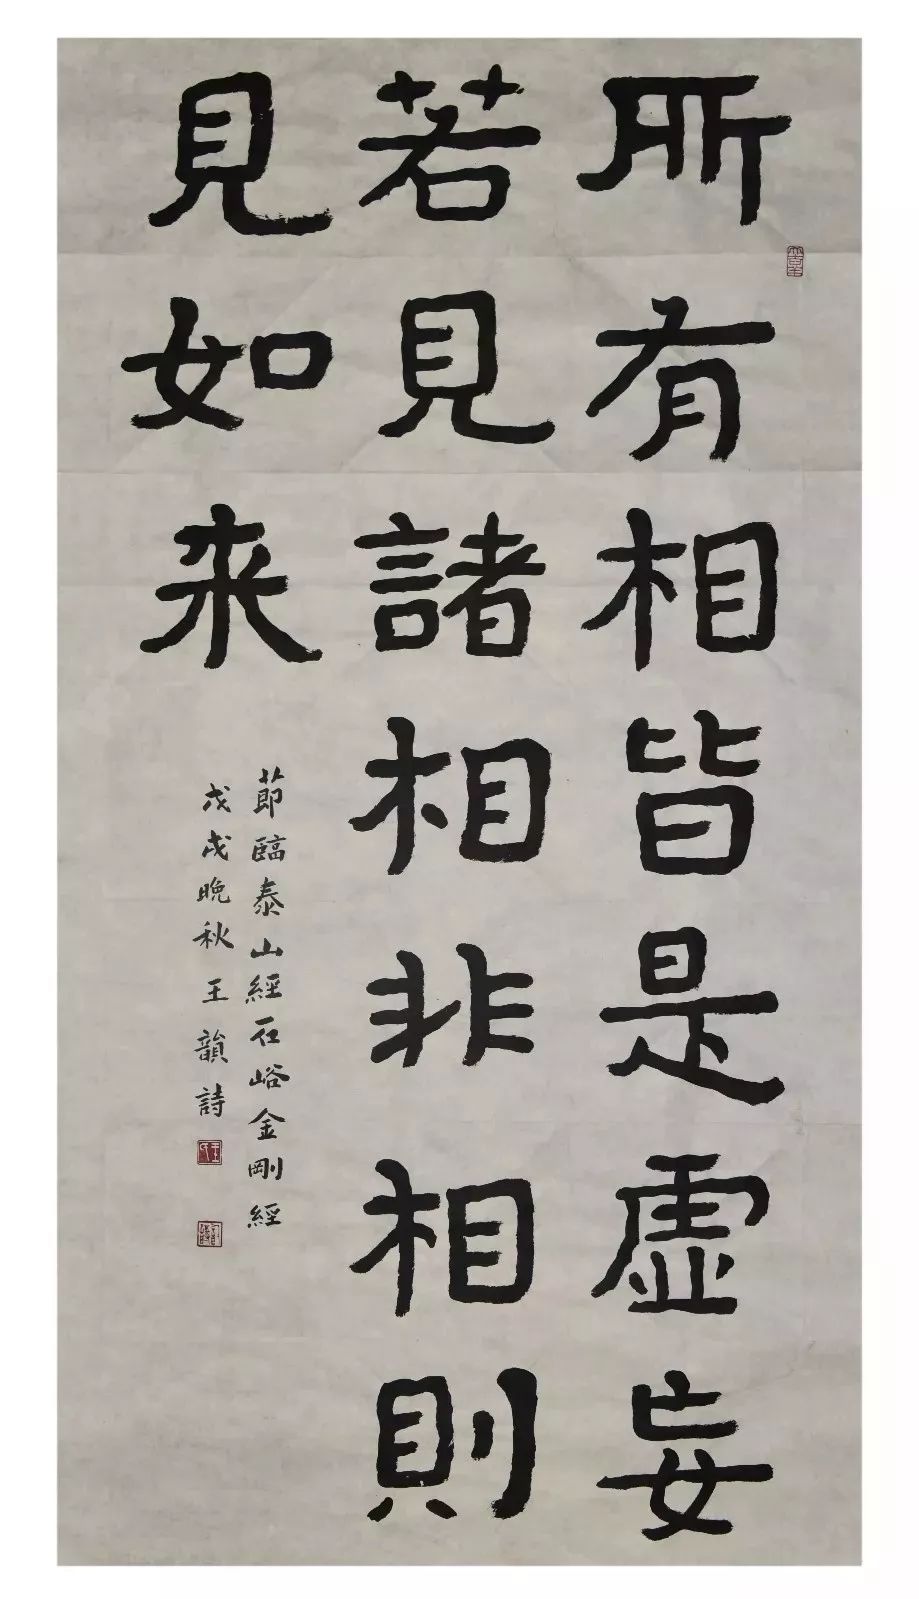 所有相皆是虛妄
若見諸相非相則
見如来
節臨泰山經石峪金剛經
戊戌晚秋王韻詩